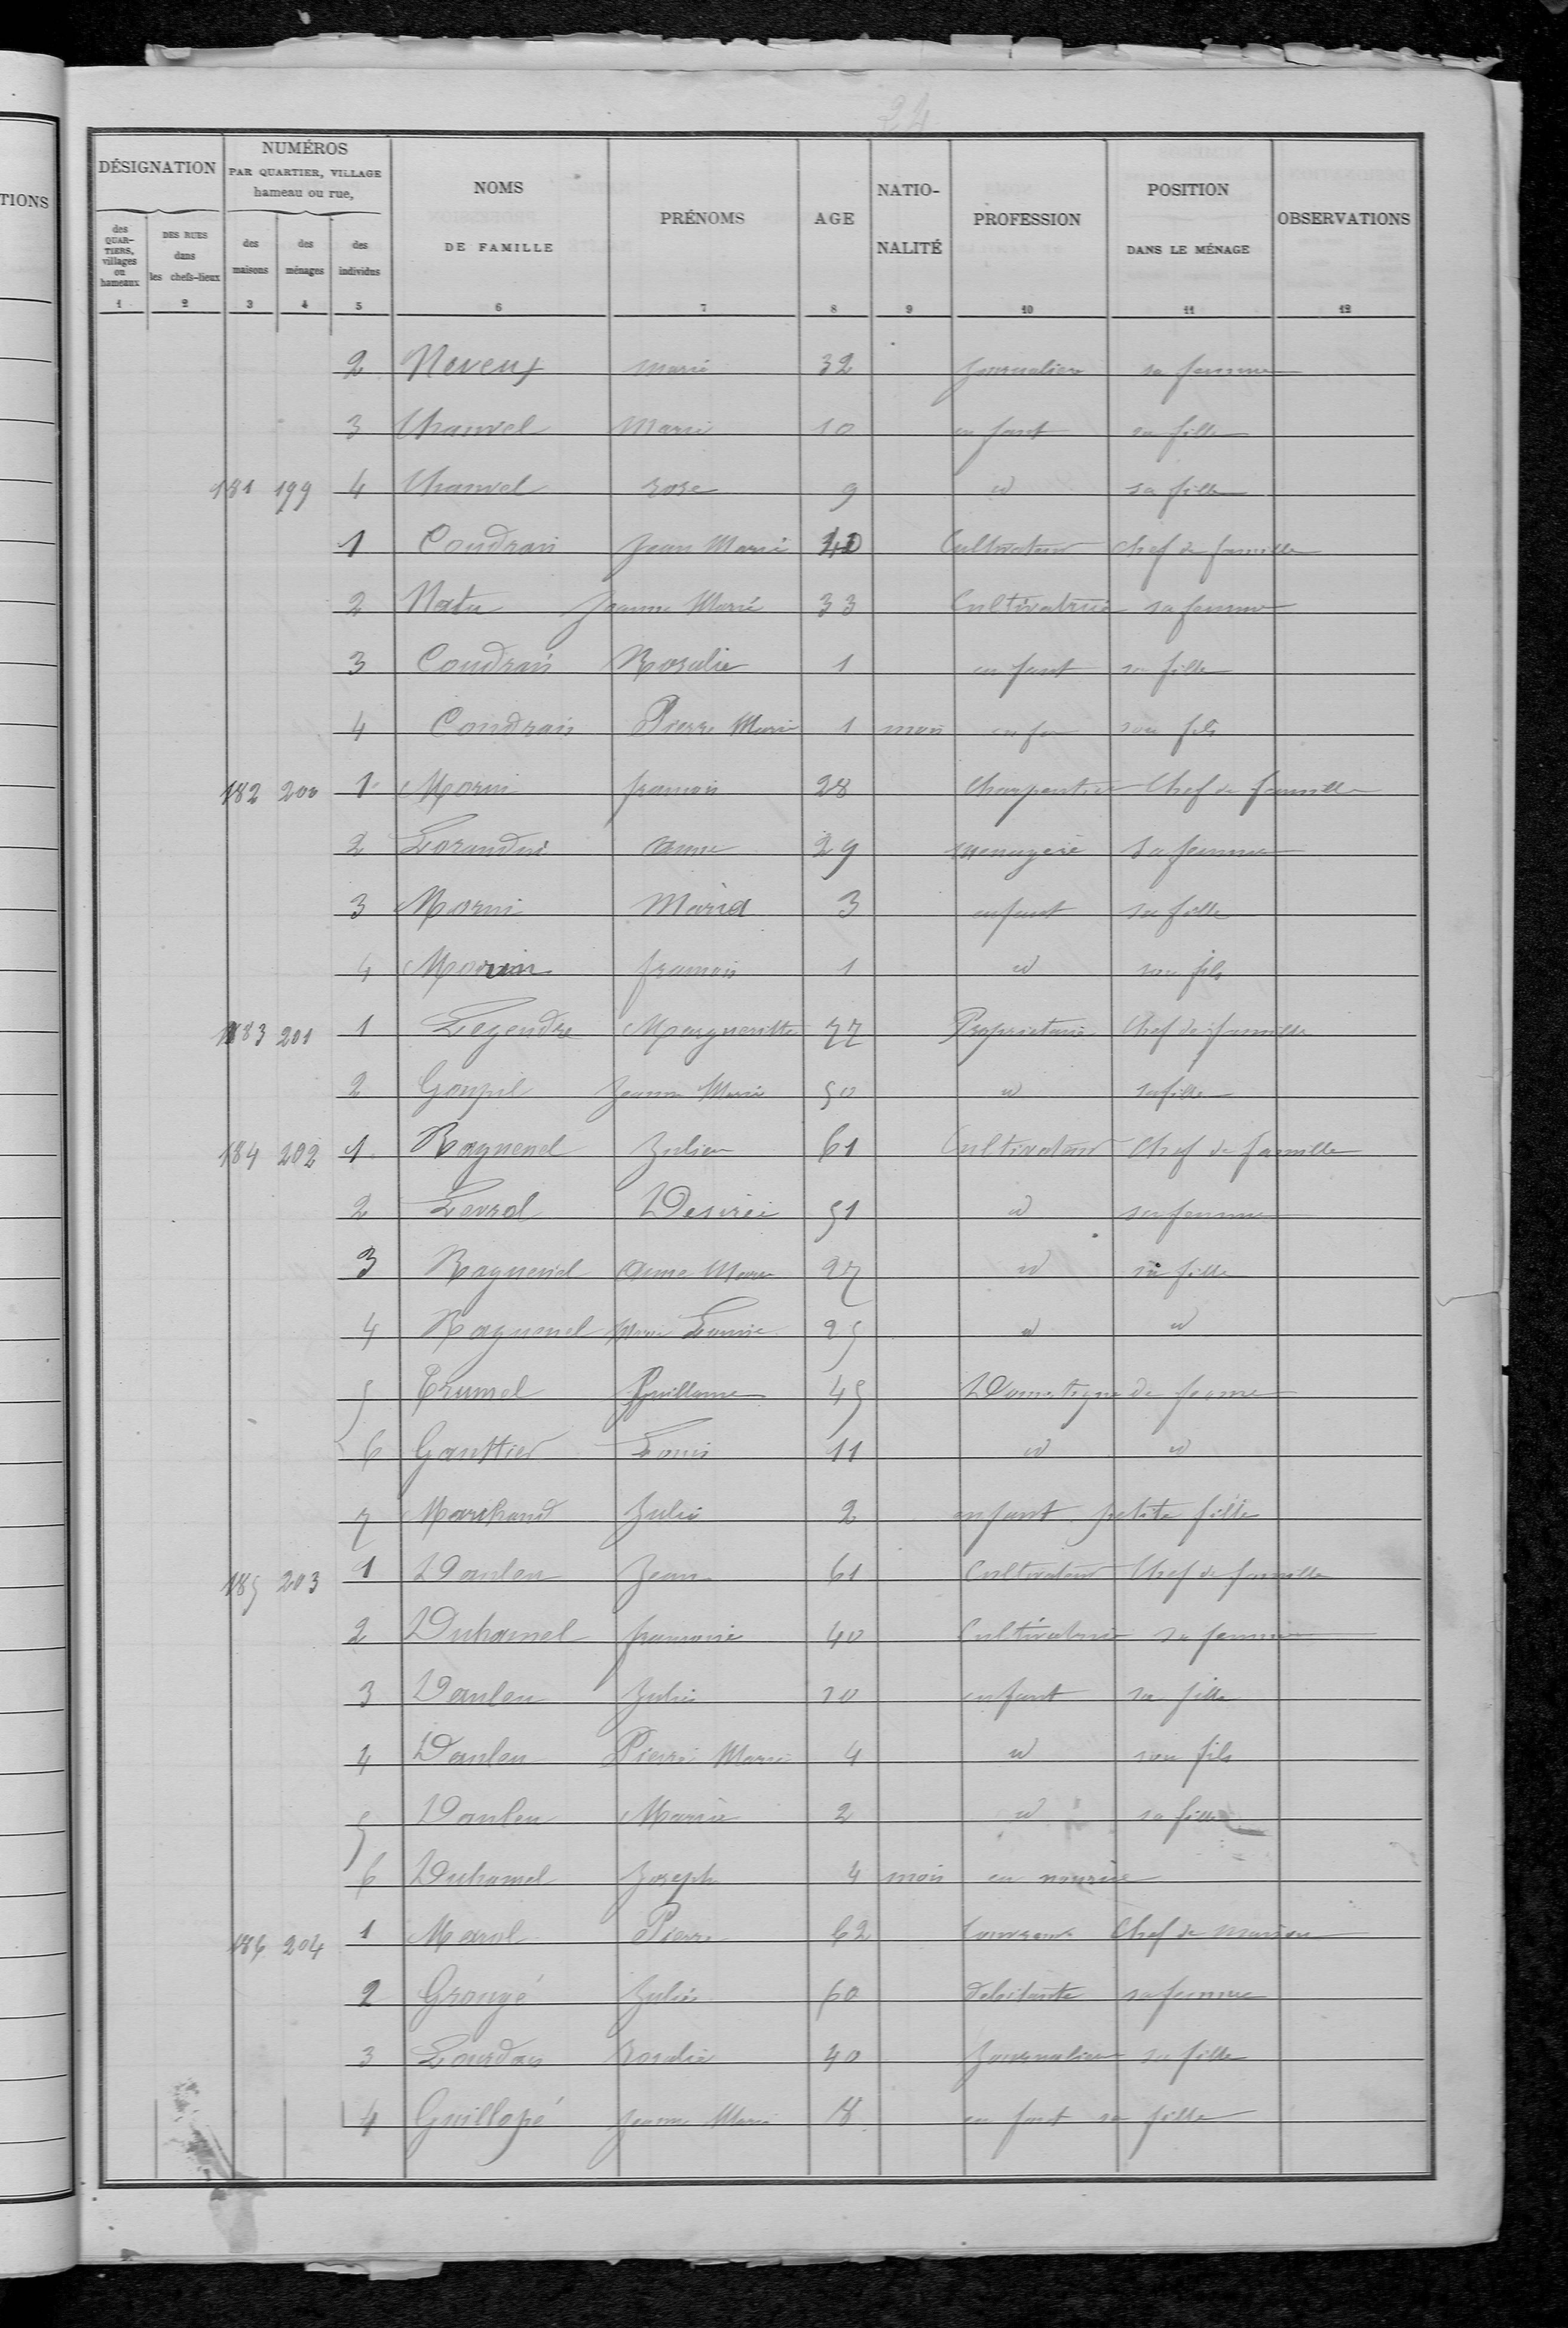 24
TIONS
DÉSIGNATION NUMÉROS PAR QUARTIER, VILLAGE hameau ou rue, NOMS DE FAMILLE PRÉNOMS AGE NATIO-NALITÉ PROFESSION POSITION DANS LE MÉNAGE OBSERVATIONS
des QUARTIERS, villages ou hameaux DES RUES dans les chefs-lieux des maisons des ménages des individus
1 2 3 4 5 6 7 8 9 10 11 12
2 Neveux marie 32 journalière sa femme
3 Chauvel Marie 10 enfant sa fille
181 199 4 Chauvel rose 9 id sa fille
1 Coudrais Jean Marie 40 Cultivateur chef de famille
2 Natu Jeanne Marie 33 Cultivatrice sa femme
3 Coudrais Rosalie 1 enfant sa fille
4 Coudrais Pierre Marie 1 mois enfan son fils
182 200 1 Morin francois 28 Charpentier Chef de famille
2 anne 29 menagère sa femme
3 Morin Maria 3 enfant sa fille
4 Morin francois 1 id son fils
183 201 1 Legendre Margueritte 77 Proprietaire Chef de famille
2 Goupil Jeanne Marie 50 id sa fille
184 202 1 Raguenel Julien 61 Cultivateur Chef de famille
2 Levrel Desirée 51 id sa femme
3 Raguenel Anne Marie 27 id sa fille
4 Raguenel Marie Louise 25 id id
5 Trumel Guillaume 45 Domestique de ferme
6 Gauttier Louis 11 id id
7 Marchand Julie 2 enfant petite fille
185 203 1 Danleu Jean 61 Cultivateur Chef de famille
2 Duhamel francoise 40 Cultivatrice sa femme
3 Danleu Julie 10 enfant sa fille
4 Danleu Pierre Marie 4 id son fils
5 Danleu Marie 2 id sa fille
6 Duhamel Joseph 4 mois en nourice
186 204 1 Marol Pierre 62 Couvreur Chef de maison
2 Grougé Julie 60 debitante sa femme
3 Lourdais rosalie 40 Journalière sa fille
4 Guillopé Jeanne Marie 8 enfant sa fille